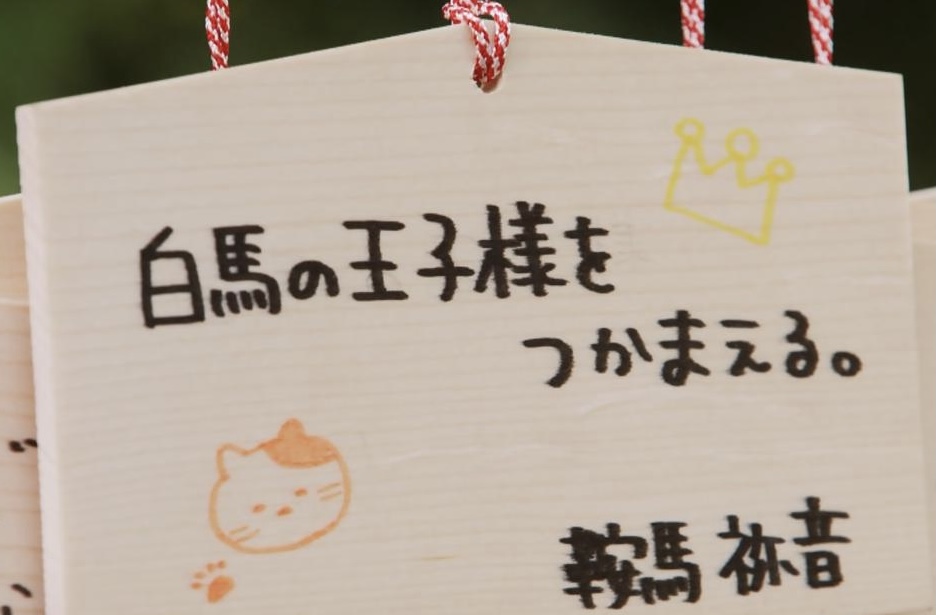 白馬の王子様を
つかまえる。
鞍馬 祢音